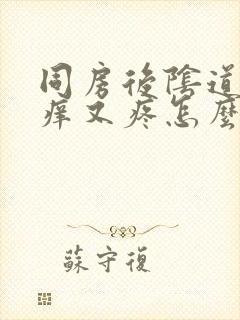 同房後陰道
痒又疼怎麼
蘇守復